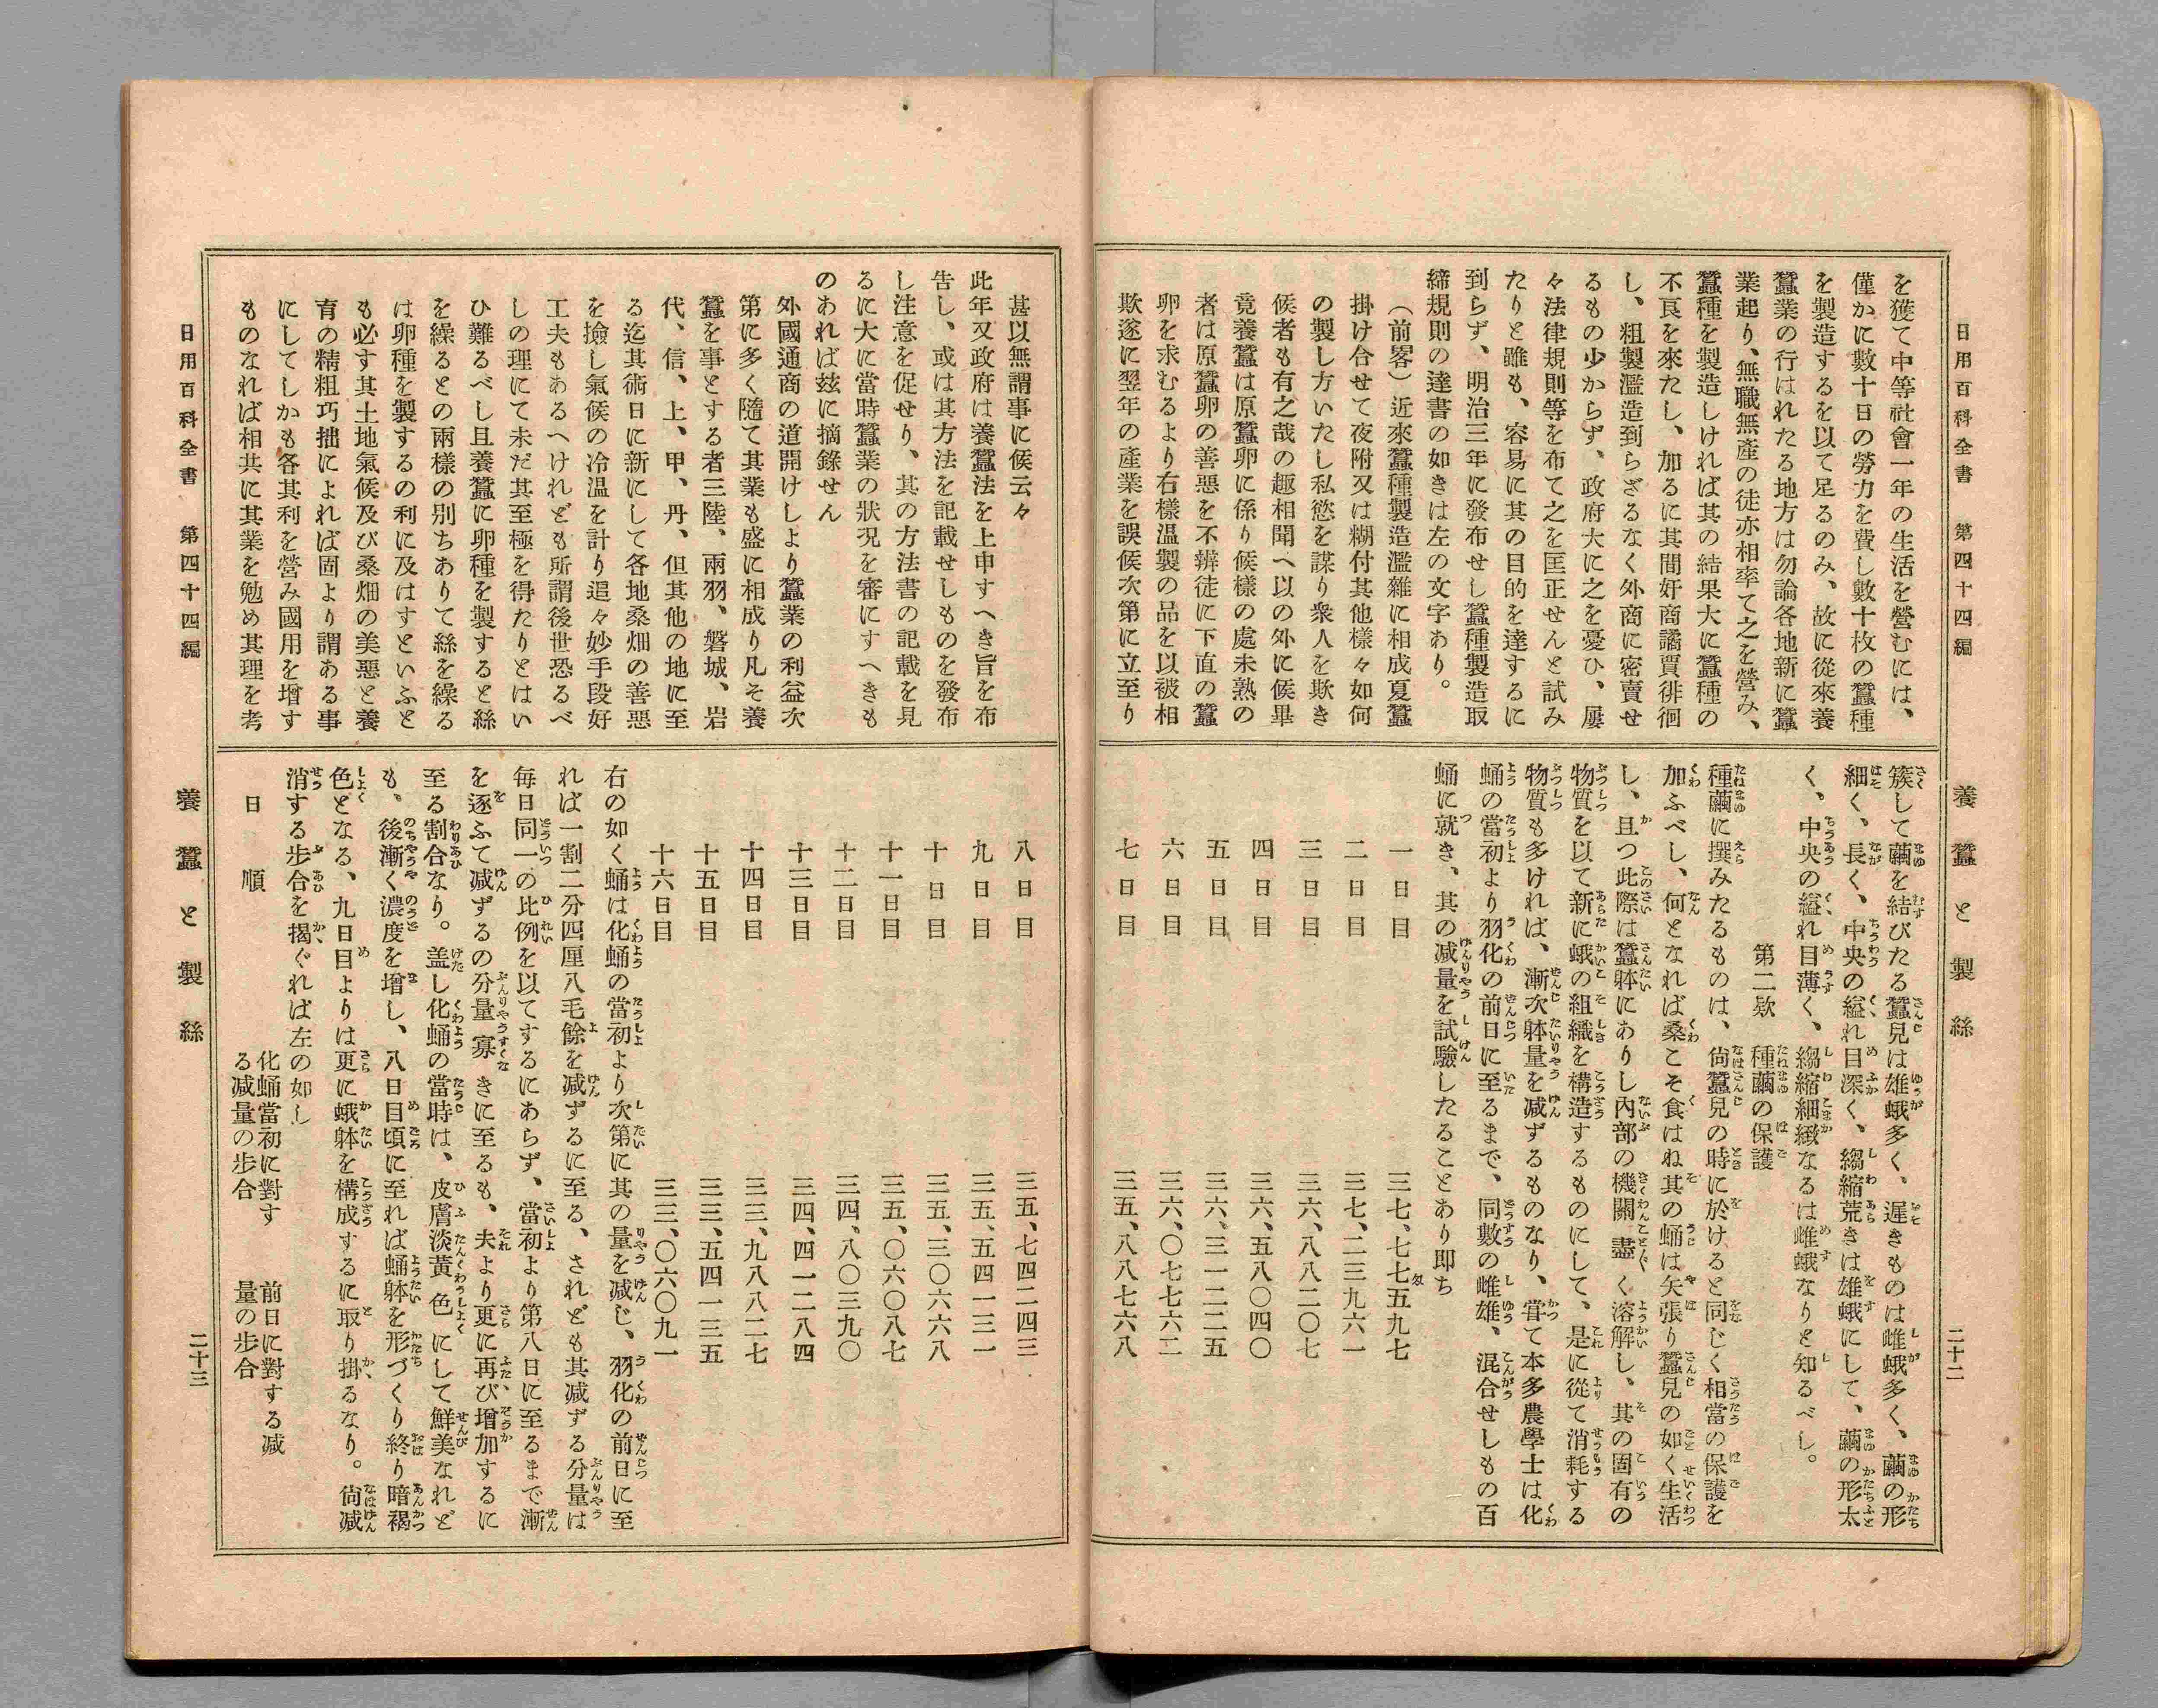 日用百科全書　第四十四編
養蠶と製絲
二十二
を獲て中等社會一年の生活を營むには、
僅かに數十日の勞力を費し數十枚の蠶種
を製造するを以て足るのみ、故に從來養
蠶業の行はれたる地方は勿論各地新に蠶
業起り、無職無產の徒亦相率て之を營み、
蠶種を製造しければ其の結果大に蠶種の
不良を來たし、加るに其間奸商譎賈徘徊
し、粗製濫造到らざるなく外商に密賣せ
るもの少からず、政府大に之を憂ひ、屢
々法律規則等を布て之を匡正せんと試み
たりと雖も、容易に其の目的を達するに
到らず、明治三年に發布せし蠶種製造取
締規則の達書の如きは左の文字あり。
（前畧）近來蠶種製造濫雜に相成夏蠶
掛け合せて夜附又は糊付其他樣々如何
の製し方いたし私慾を謀り衆人を欺き
候者も有之哉の趣相聞へ以の外に候畢
竟養蠶は原蠶卵に係り候樣の處未熟の
者は原蠶卵の善惡を不辨徒に下直の蠶
卵を求むるより右樣温製の品を以被相
欺遂に翌年の產業を誤候次第に立至り
簇して繭を結びたる蠶兒は雄蛾多く、遲きものは雌蛾多く、繭の形
細く、長く、中央の縊れ目深く、縐縮荒きは雄蛾にして、繭の形太
く、中央の縊れ目薄く、縐縮細緻なるは雌蛾なりと知るべし。
第二欵　種繭の保護
種繭に撰みたるものは、尙蠶兒の時に於けると同じく相當の保護を
加ふべし、何となれば桑こそ食はね其の蛹は矢張り蠶兒の如く生活
し、且つ此際は蠶躰にありし內部の機關盡く溶解し、其の固有の
物質を以て新に蛾の組織を構造するものにして、是に從て消耗する
物質も多ければ、漸次躰量を減ずるものなり、甞て本多農學士は化
蛹の當初より羽化の前日に至るまで、同數の雌雄、混合せしもの百
蛹に就き、其の減量を試驗したることあり即ち
一日目　三七、七七匁五九七
二日目　三七、二三九六一
三日目　三六、八八二〇七
四日目　三六、五八〇四〇
五日目　三六、三一二二五
六日目　三六、〇七七六二
七日目　三五、八八七六八
甚以無謂事に候云々
此年又政府は養蠶法を上申すへき旨を布
告し、或は其方法を記載せしものを發布
し注意を促せり、其の方法書の記載を見
るに大に當時蠶業の狀況を審にすへきも
のあれば玆に摘錄せん
外國通商の道開けしより蠶業の利益次
第に多く隨て其業も盛に相成り凡そ養
蠶を事とする者三陸、兩羽、磐城、岩
代、信、上、甲、丹、但其他の地に至
る迄其術日に新にして各地桑畑の善惡
を撿し氣候の冷温を計り追々妙手段好
工夫もあるへけれども所謂後世恐るべ
しの理にて未だ其至極を得たりとはい
ひ難るべし且養蠶に卵種を製すると絲
を繰るとの兩樣の別ちありて絲を繰る
は卵種を製するの利に及はすといふと
も必す其土地氣候及び桑畑の美惡と養
育の精粗巧拙によれば固より謂ある事
にしてしかも各其利を營み國用を增す
ものなれば相共に其業を勉め其理を考
八日目　三五、七四二四三
九日目　三五、五四一三一
十日目　三五、三〇六六八
十一日目　三五、〇六〇八七
十二日目　三四、八〇三九〇
十三日目　三四、四一二八四
十四日目　三三、九八八二七
十五日目　三三、五四一三五
十六日目　三三、〇六〇九一
右の如く蛹は化蛹の當初より次第に其の量を減じ、羽化の前日に至
れば一割二分四厘八毛餘を減ずるに至る、されども其減ずる分量は
每日同一の比例を以てするにあらず、當初より第八日に至るまで漸
を逐ふて減ずるの分量寡きに至るも、夫より更に再び增加するに
至る割合なり。盖し化蛹の當時は、皮膚淡黃色にして鮮美なれど
も、後漸く濃度を增し、八日目頃に至れば蛹躰を形づくり終り暗褐
色となる、九日目よりは更に蛾躰を構成するに取り掛るなり。尙減
消する步合を揭ぐれば左の如し
日順　化蛹當初に對する減量の步合　前日に對する減量の步合
日用百科全書　第四十四編
養蠶と製絲
二十三